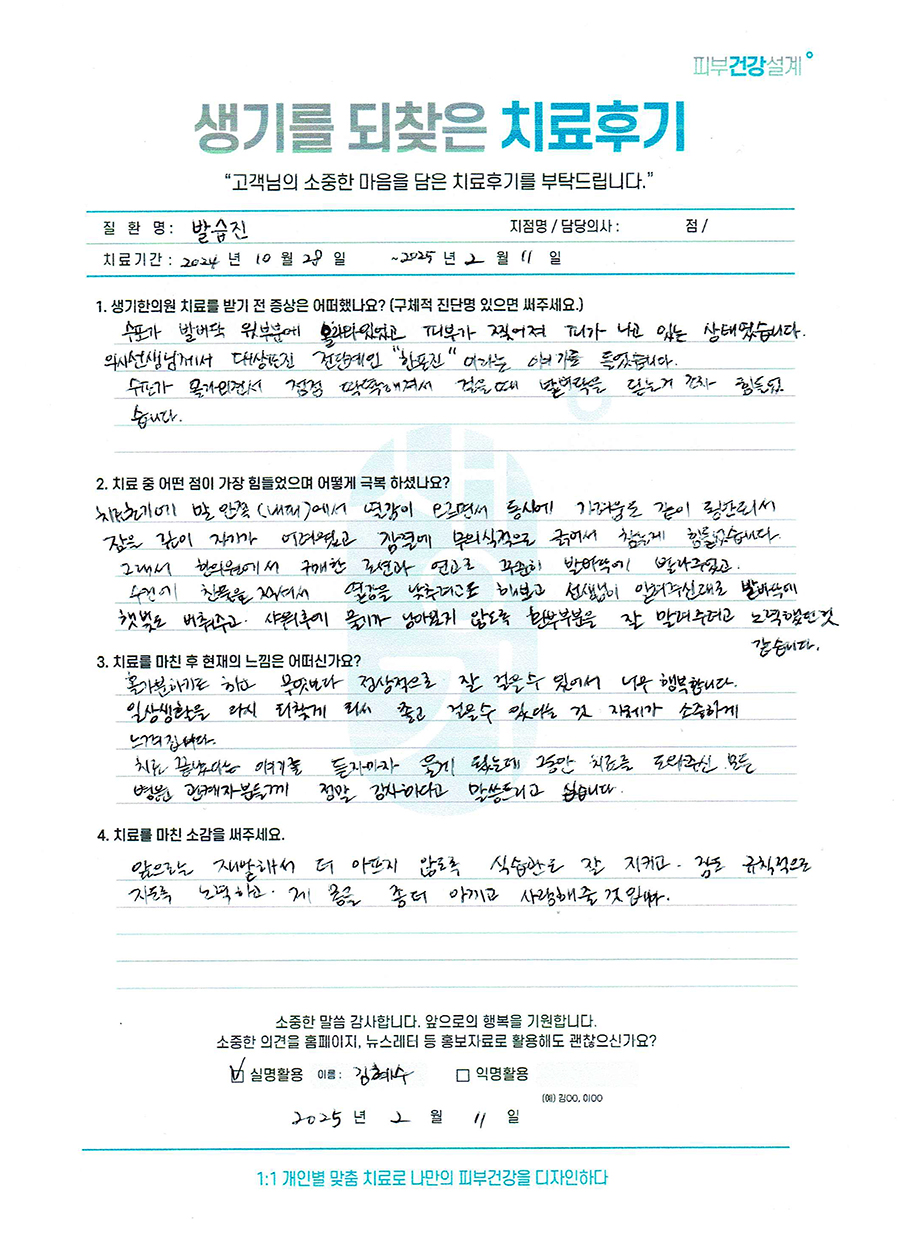 피부건강설계
생기를 되찾은 치료후기
“고객님의 소중한 마음을 담은 치료후기를 부탁드립니다.”
질 환 명 : 발습진 지점명 / 담당의사 : 점 /
치료기간 : 2024 년 10 월 28 일 ~2025 년 2 월 11 일
1. 생기한의원 치료를 받기 전 증상은 어떠했나요? (구체적 진단명 있으면 써주세요.)
수포가 발바닥 윗부분에 올라와있었고 피부가 찢어져 피가 나고 있는 상태였습니다.
의사선생님께서 대상포진 전단계인 "한포진" 이라는 얘기를 들었습니다.
수포가 올라오면서 점점 딱딱해져서 걸을때 발바닥을 딛는게 힘들었
습니다.
2. 치료 중 어떤 점이 가장 힘들었으며 어떻게 극복 하셨나요?
치료초기에 발 안쪽 에서 열감이 오르면서 동시에 가려움도 같이 동반되서
잠을 깊이 자기가 어려웠고 무의식적으로 긁어서 참는게 힘들었습니다.
그래서 한의원에서 구매한 로션과 연고로 꾸준히 발바닥에 발라주었고.
수건에 찬물을 적셔서 열감을 낮추려고도 해보고 선생님이 알려주신대로 발바닥에
햇빛도 비춰주고. 샤워후에 물기가 남아있지 않도록 환부부분을 잘 말려주려고 노력했던것
같습니다.
3. 치료를 마친 후 현재의 느낌은 어떠신가요?
홀가분하기도 하고 무엇보다 정상적으로 잘 걸을수 있어서 너무 행복합니다.
일상생활을 다시 되찾게 되서 좋고 걸을수 있다는 것 자체가 소중하게
느껴집니다.
치료 끝났다는 얘기를 듣자마자 울게 됐는데 그동안 치료를 도와주신 모든
병원 관계자분들께 정말 감사하다고 말씀드리고 싶습니다.
4. 치료를 마친 소감을 써주세요.
앞으로는 재발해서 더 아프지 않도록 식습관도 잘 지키고. 잠도 규칙적으로
자도록 노력하고. 제 몸을 좀더 아끼고 사랑해줄 것입니다.
소중한 말씀 감사합니다. 앞으로의 행복을 기원합니다.
소중한 의견을 홈페이지, 뉴스레터 등 홍보자료로 활용해도 괜찮으신가요?
실명활용 이름 : 김혜수 익명활용
(예) 김OO, 이OO
2025 년 2 월 11 일
1:1 개인별 맞춤 치료로 나만의 피부건강을 디자인하다